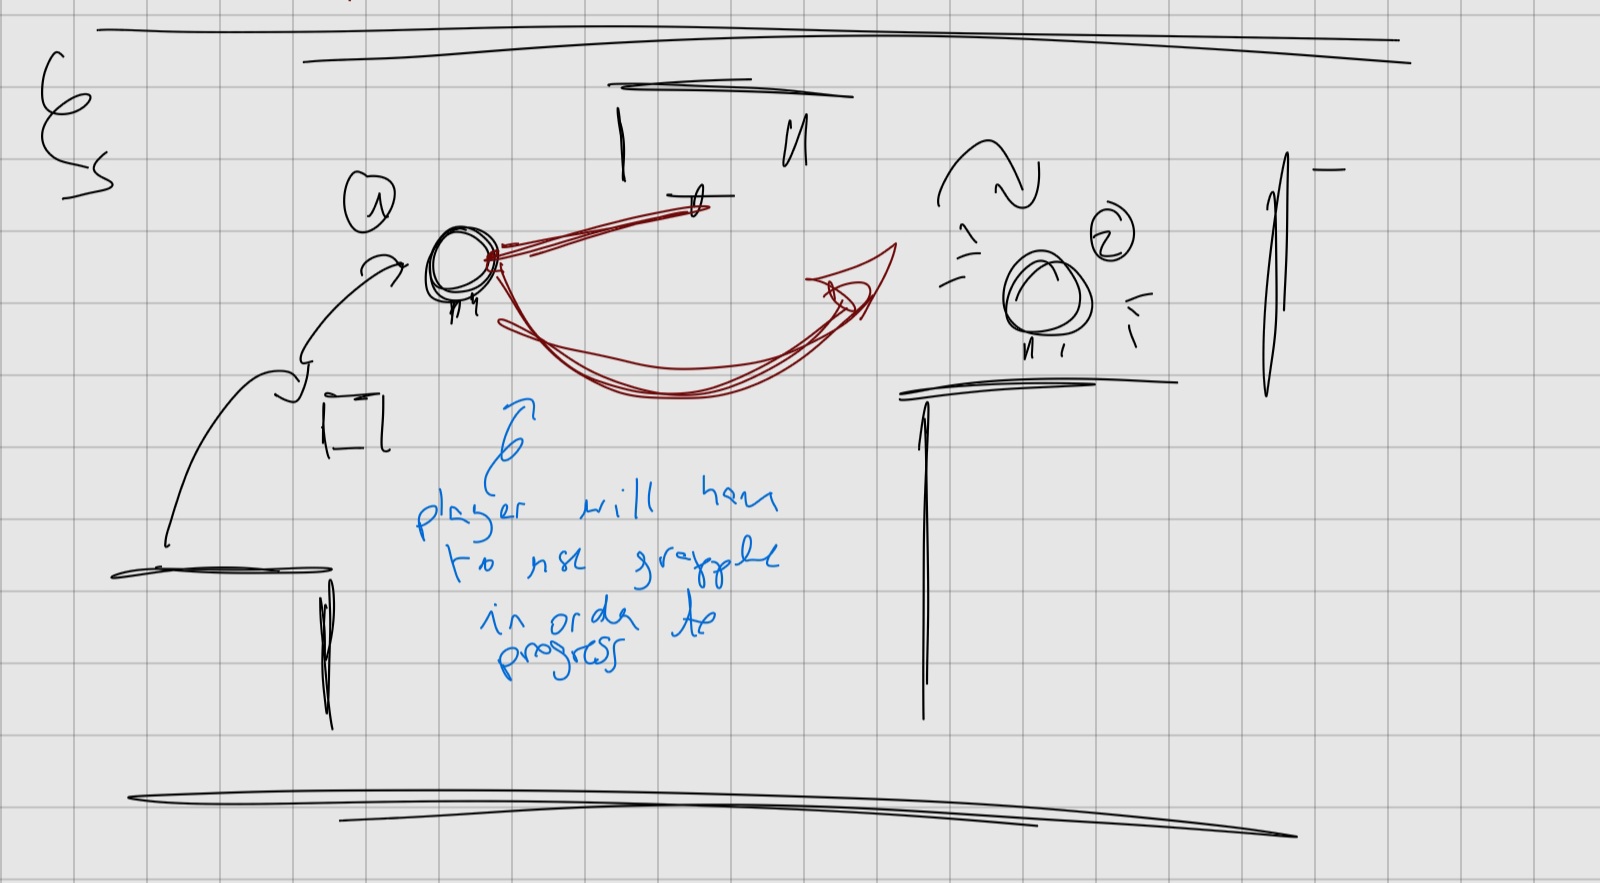 1
2
player will have
to use grapple
in order to
progress